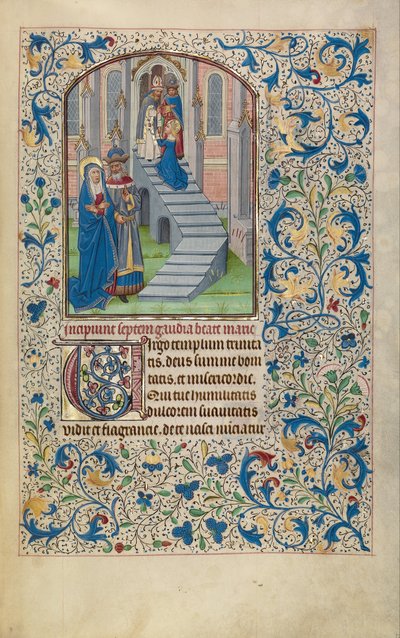 Incipiunt septem gaudia beate marie
Uirgo templum trinita
tis. deus summe boni
tatis. et misericordie.
Qui tue humilitatis
dulcorem suauitatis
vidit et flagrancie. de te nasci niciatur